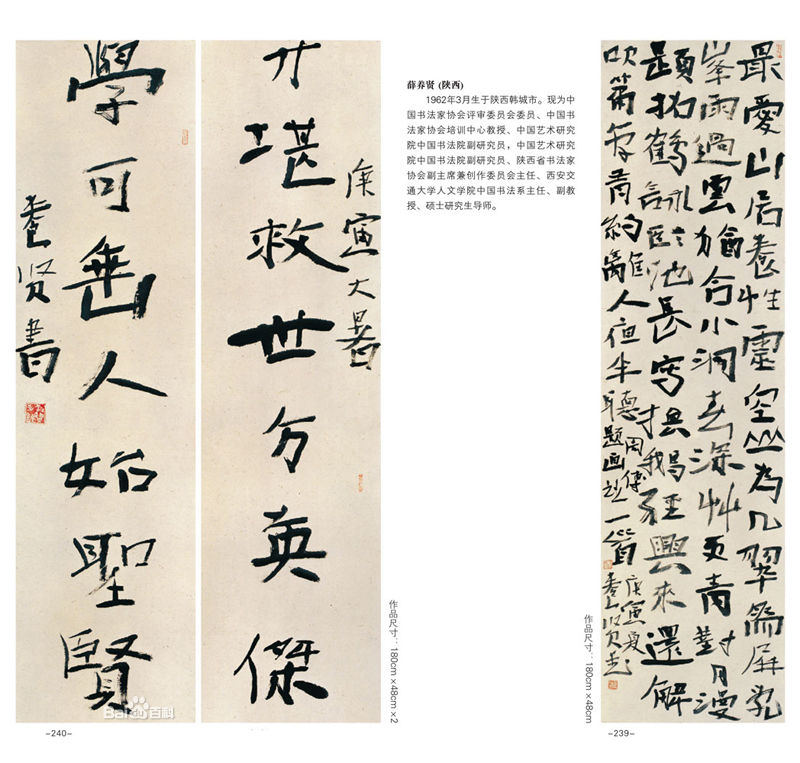 才堪救世方英傑
庚寅大暑
學可垂人始聖賢
養贤書
Baidu百科
作品尺寸：180cm×48cm×2
-240-
薛养贤 (陕西)
1962年3月生于陕西韩城市。现为中
国书法家协会评审委员会委员、中国书
法家协会培训中心教授、中国艺术研究
院中国书法院副研究员，中国艺术研究
院中国书法院副研究员、陕西省书法家
协会副主席兼创作委员会主任、西安交
通大学人文学院中国书法系主任、副教
授、硕士研究生导师。
最愛山居養性靈空山為几翠為屏乱
峯雨過雲猶合小洞春深艸更青對月漫
題招鶴詠臨池長寫换鵝經興來還解
吹簫離人夜半聽
題画詩一首
庚寅夏
作品尺寸：180cm×48cm
-239-